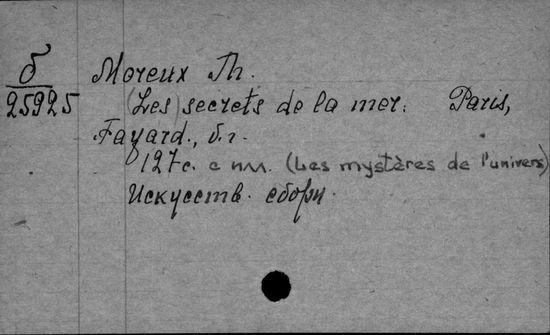 б
25925
Moreux Th.
(Les) secrets de la mer. Paris,
Fayard., б.г.
127с. с илл. (Les mystères de l'univers)
Искусств. сборн.